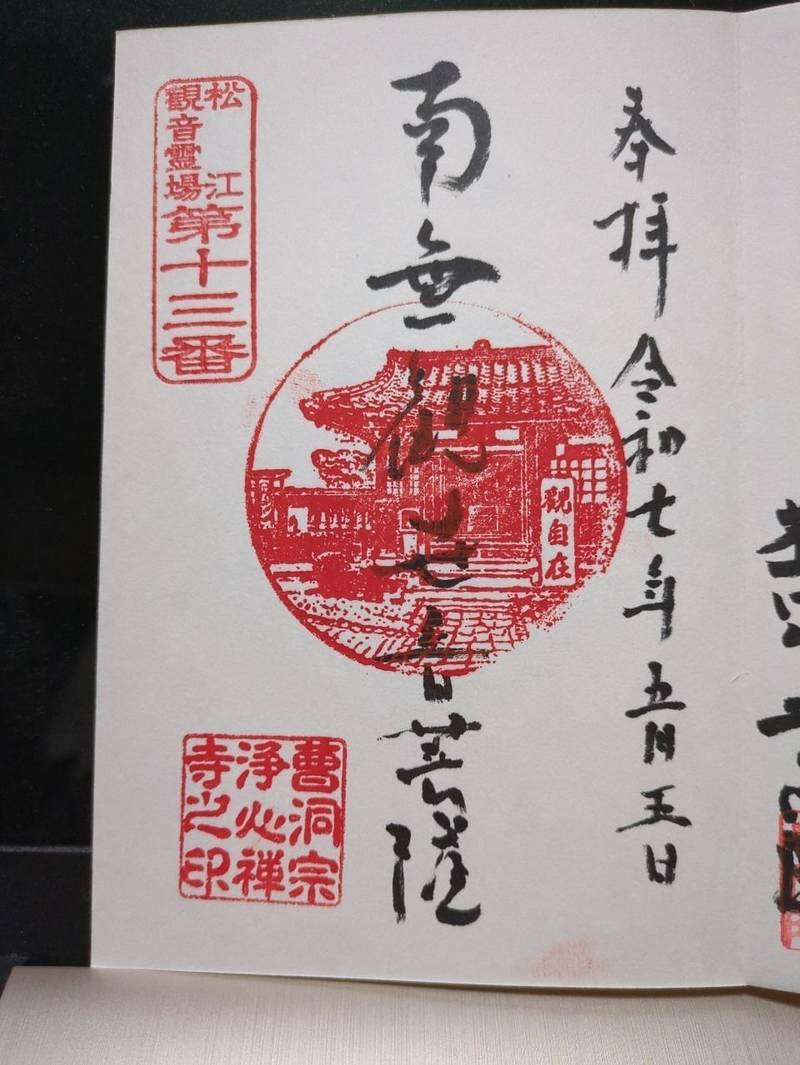 奉拝 令和七年五月五日
南無観世音菩薩
觀自在
松江
觀音靈場
第十三番
曹洞宗
浄心禅
寺之印